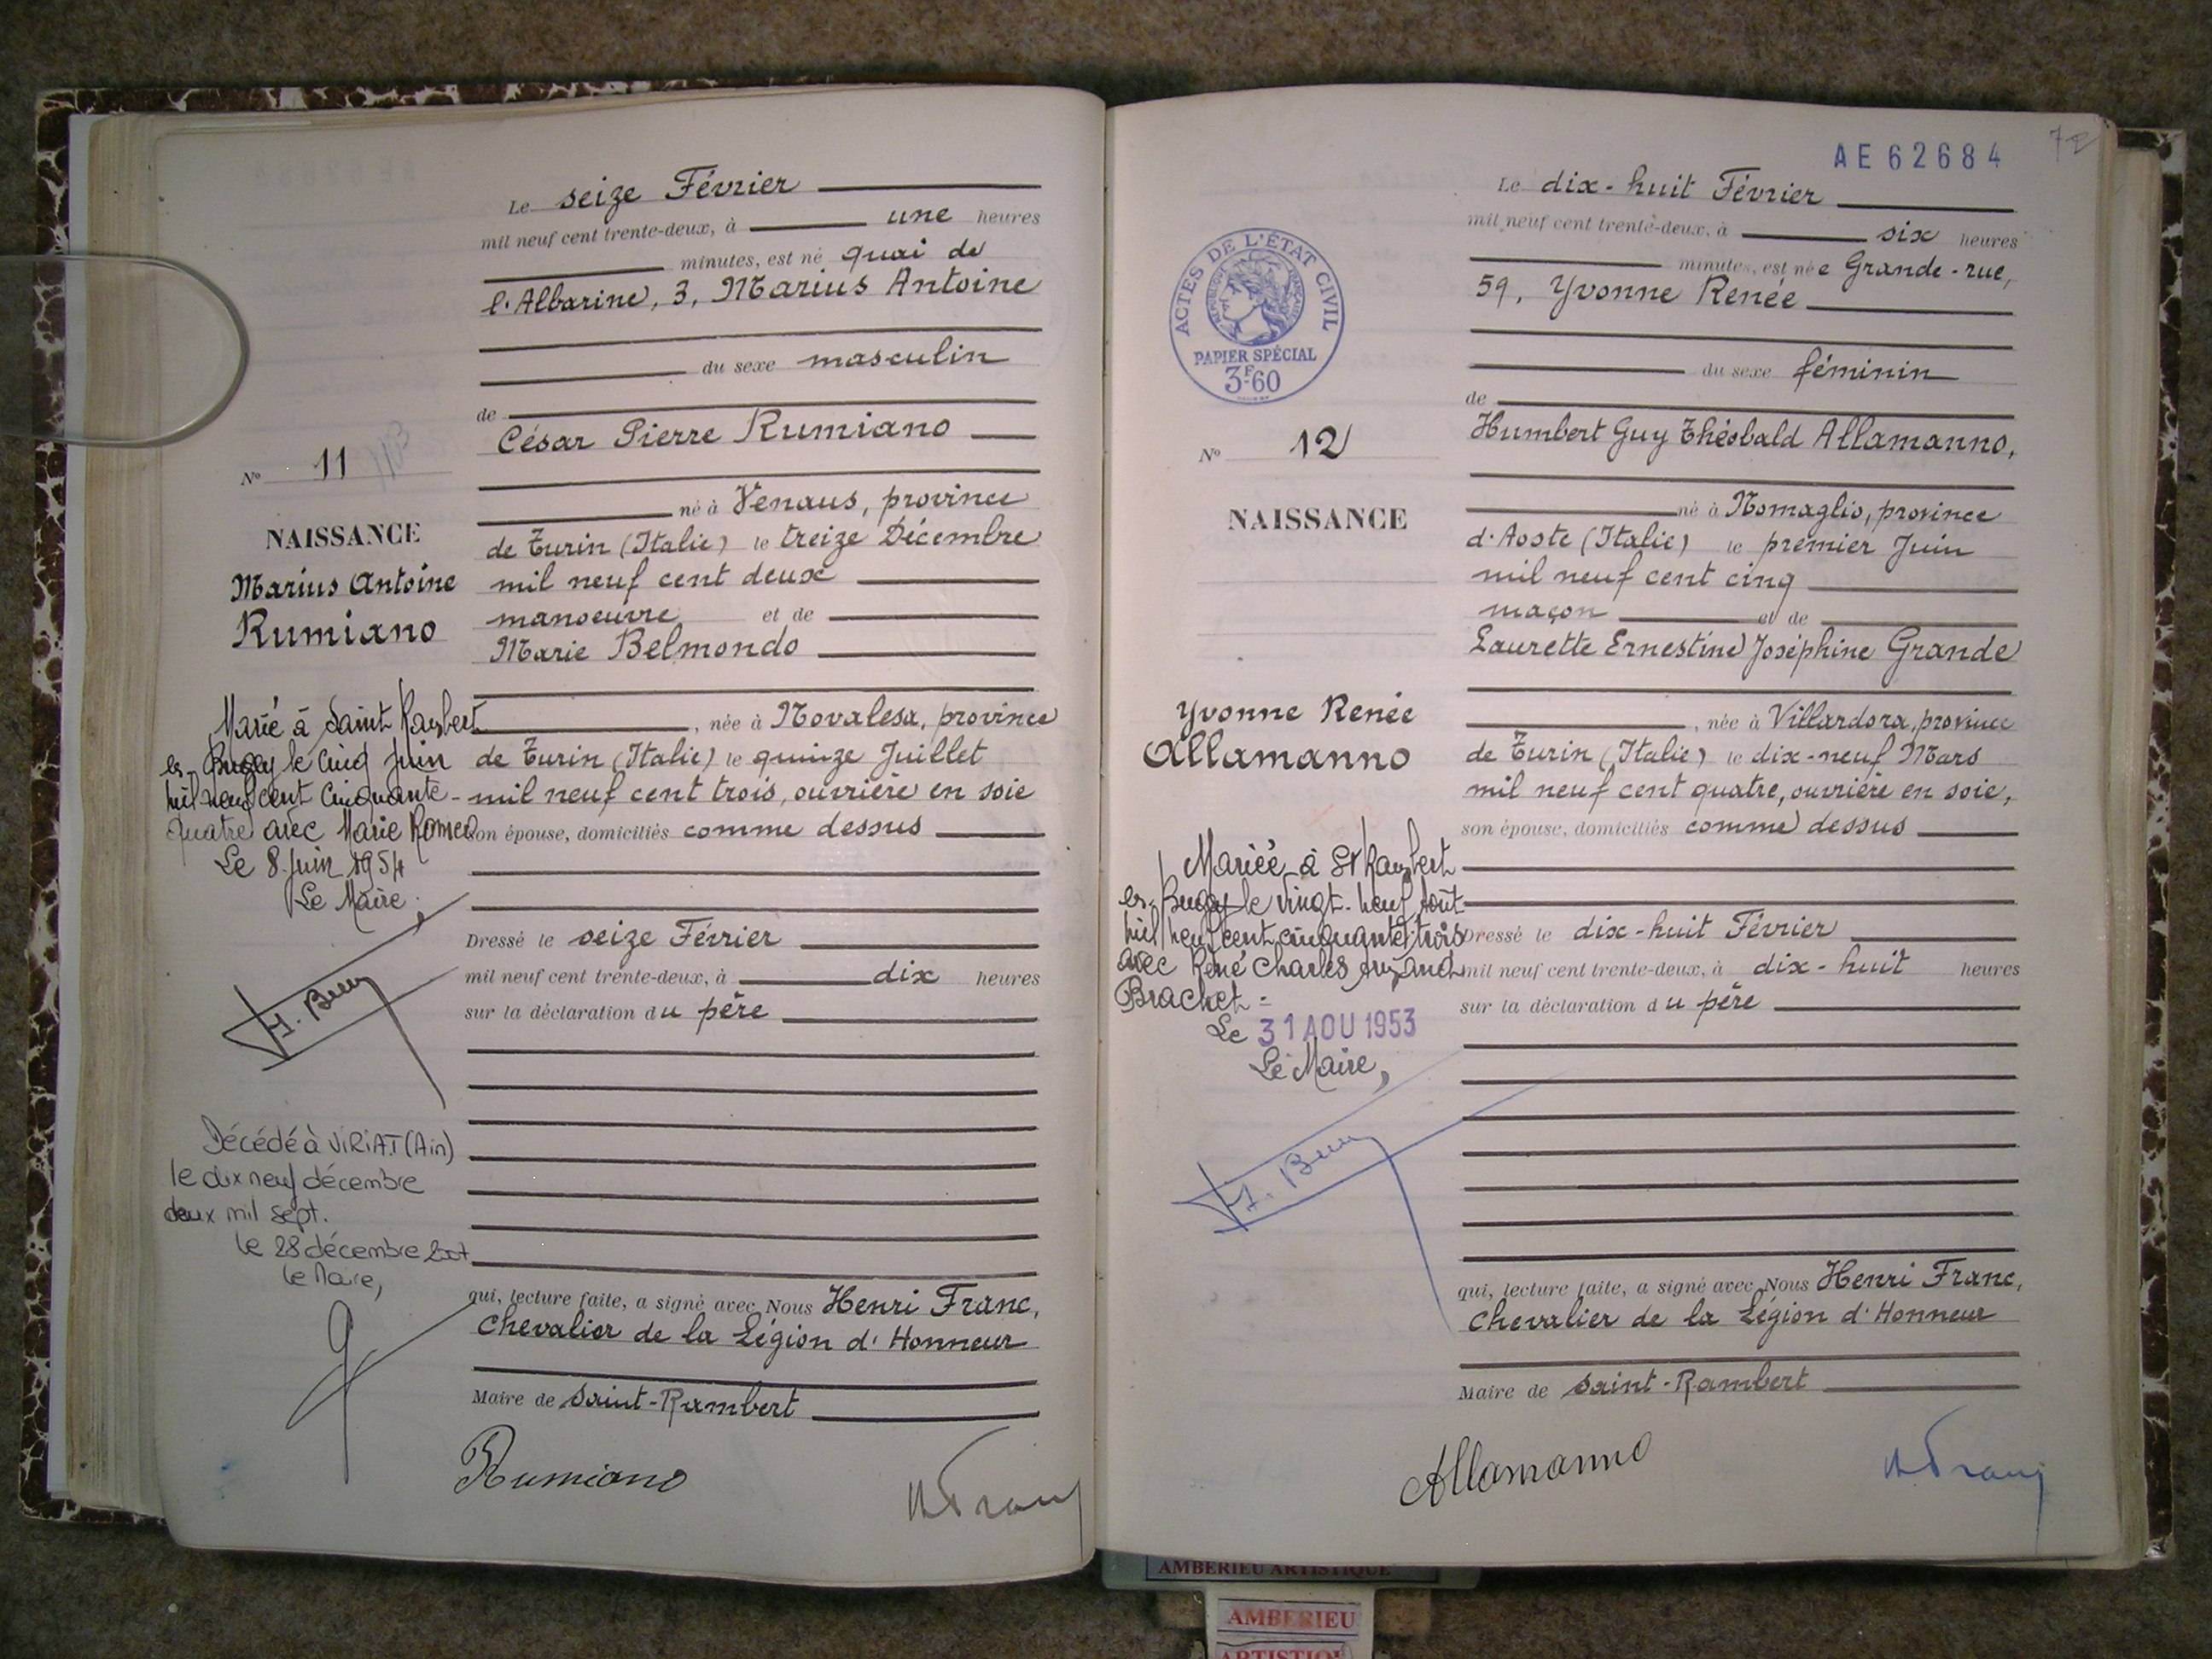 Le seize Février
mil neuf cent trente-deux, à une heures
minutes, est né quai de
l'Albarine, 3, Marius Antoine
du sexe masculin
de
César Pierre Rumiano
né à Venaus, province
de Turin (Italie) le treize Décembre
mil neuf cent deux
manoeuvre et de
Marie Belmondo
, née à Novalesa, province
de Turin (Italie) le quinze Juillet
mil neuf cent trois, ouvrière en soie
son épouse, domiciliés comme dessus
Dressé le seize Février
mil neuf cent trente-deux, à dix heures
sur la déclaration du père
qui, lecture faite, a signé avec Nous Henri Franc,
Chevalier de la Légion d'Honneur
Maire de Saint-Rambert
Rumiano
H. Franc
N° 11
NAISSANCE
Marius Antoine
Rumiano
Marié à Saint Rambert
en-Bugey le cinq juin
mil neuf cent cinquante-
quatre avec Marie Romeo
Le 8 Juin 1954
Le Maire,
Décédé à VIRIAT (Ain)
le dix neuf décembre
deux mil sept.
le 28 décembre 2007
le Maire,
AE62684
72
Le dix-huit Février
mil neuf cent trente-deux, à six heures
minutes, est née Grande-rue,
59, Yvonne Renée
du sexe féminin
de
Humbert Guy Théobald Allamanno,
né à Nomaglio, province
d'Aoste (Italie) le premier Juin
mil neuf cent cinq
maçon et de
Laurette Ernestine Joséphine Grande
, née à Villardora, province
de Turin (Italie) le dix-neuf Mars
mil neuf cent quatre, ouvrière en soie,
son épouse, domiciliés comme dessus
Dressé le dix-huit Février
mil neuf cent trente-deux, à dix-huit heures
sur la déclaration du père
qui, lecture faite, a signé avec Nous Henri Franc,
Chevalier de la Légion d'Honneur
Maire de Saint-Rambert
Allamanno
H. Franc
ACTES DE L'ÉTAT CIVIL
RÉPUBLIQUE FRANÇAISE
PAPIER SPÉCIAL
3F60
N° 12
NAISSANCE
Yvonne Renée
Allamanno
Mariée à St Rambert
en-Bugey le vingt-neuf Août
mil neuf cent cinquante-trois
avec René Charles
Brachet-
Le 31 AOU 1953
Le Maire,
AMBERIEU ARTISTIQUE
AMBERIEU